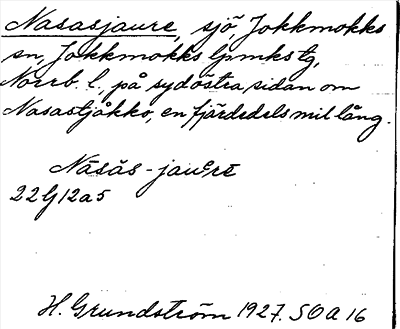 Nasasjaure, sjö, Jokkmokks
sn, Jokkmokks lpmks tg,
Norrb. l., på sydöstra sidan om
Nasastjåkko, en fjärdedels mil lång.
Nāsās-jauᵉrē
22G12a5
H. Grundström 1927. SOA 16